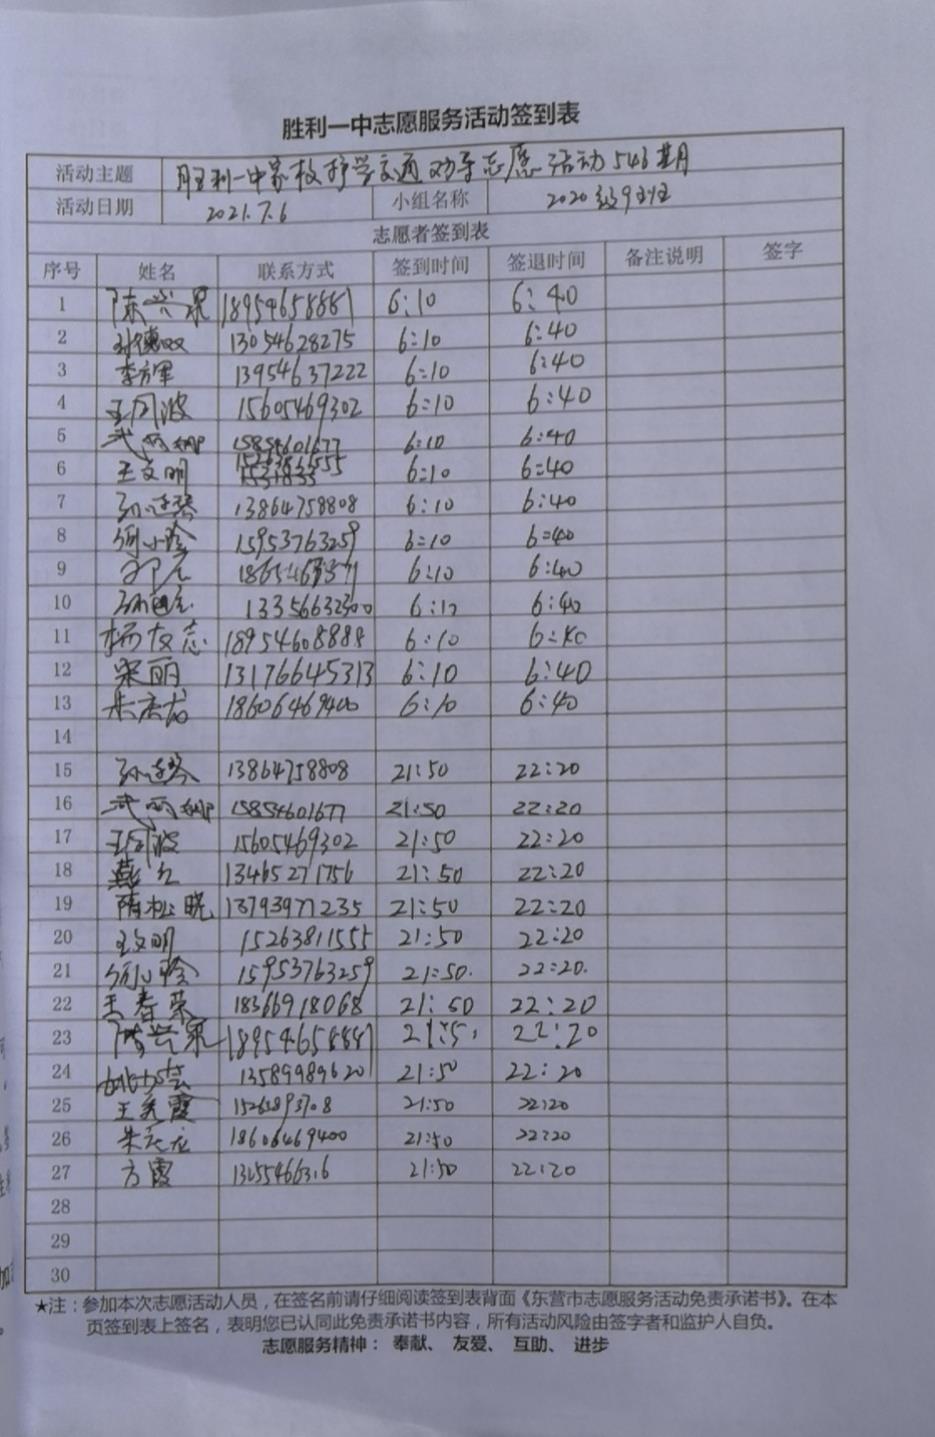 胜利一中志愿服务活动签到表
活动主题 胜利一中家校护学交通劝导志愿活动546期
活动日期 2021.7.6 小组名称 2020级9班
志愿者签到表
序号 姓名 联系方式 签到时间 签退时间 备注说明 签字
1 18954658881 6:10 6:40
2 孙德双 13054628275 6:10 6:40
3 李方军 13954637222 6:10 6:40
4 王同波 15605469302 6:10 6:40
5 武丽娜 15854601677 6:10 6:40
6 王文明 6:10 6:40
7 13864758808 6:10 6:40
8 15953763259 6:10 6:40
9 6:10 6:40
10 13356632300 6:10 6:40
11 杨友志 18954608888 6:10 6:40
12 宋丽 13176645313 6:10 6:40
13 18606469400 6:10 6:40
14
15 13864758808 21:50 22:20
16 武丽娜 15854601677 21:50 22:20
17 王同波 15605469302 21:50 22:20
18 13465271756 21:50 22:20
19 隋松晓 13793977235 21:50 22:20
20 王文明 15263811555 21:50 22:20
21 15953763259 21:50. 22:20.
22 王春荣 18366918068 21:50 22:20
23 22:20
24 13589989620 21:50 22:20
25 王秀霞 21:50 22:20
26 18606469400 21:50 22:20
27 方霞 21:50 22:20
28
29
30
★注：参加本次志愿活动人员，在签名前请仔细阅读签到表背面《东营市志愿服务活动免责承诺书》。在本
页签到表上签名，表明您已认同此免责承诺书内容，所有活动风险由签字者和监护人自负。
志愿服务精神： 奉献、 友爱、 互助、 进步